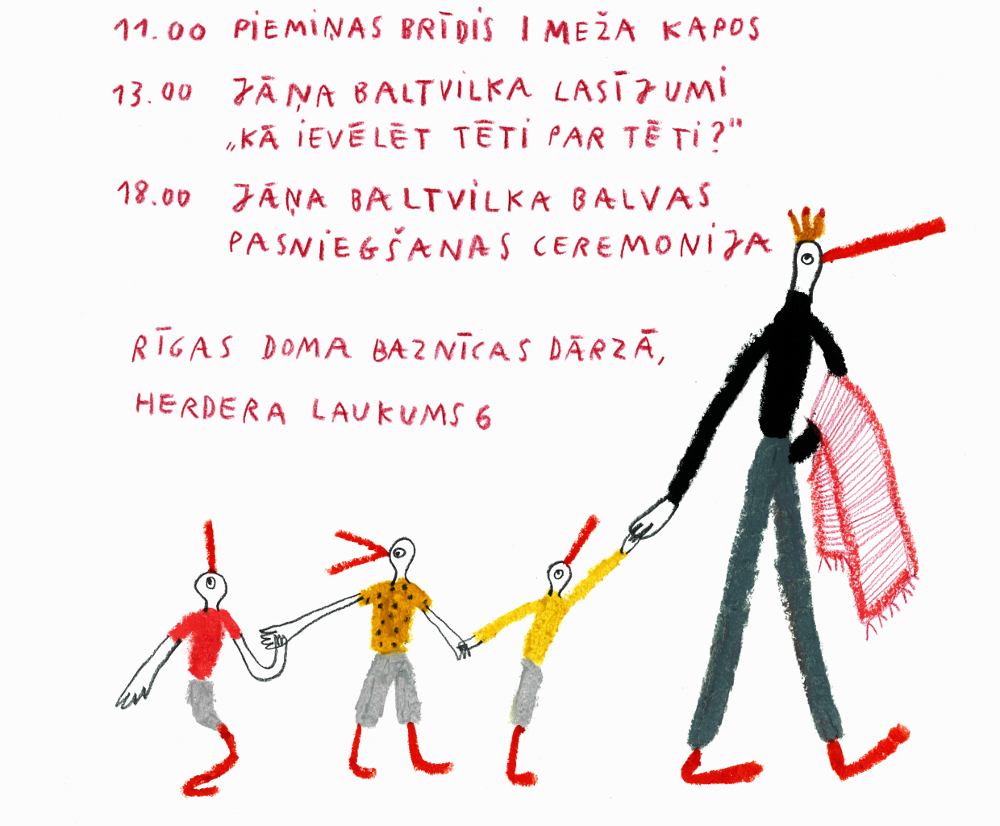 11.00 PIEMIŅAS BRĪDIS I MEŽA KAPOS
13.00 JĀŅA BALTVILKA LASĪJUMI
„KĀ IEVĒLĒT TĒTI PAR TĒTI?"
18.00 JĀŅA BALTVILKA BALVAS
PASNIEGŠANAS CEREMONIJA
RĪGAS DOMA BAZNĪCAS DĀRZĀ,
HERDERA LAUKUMS 6